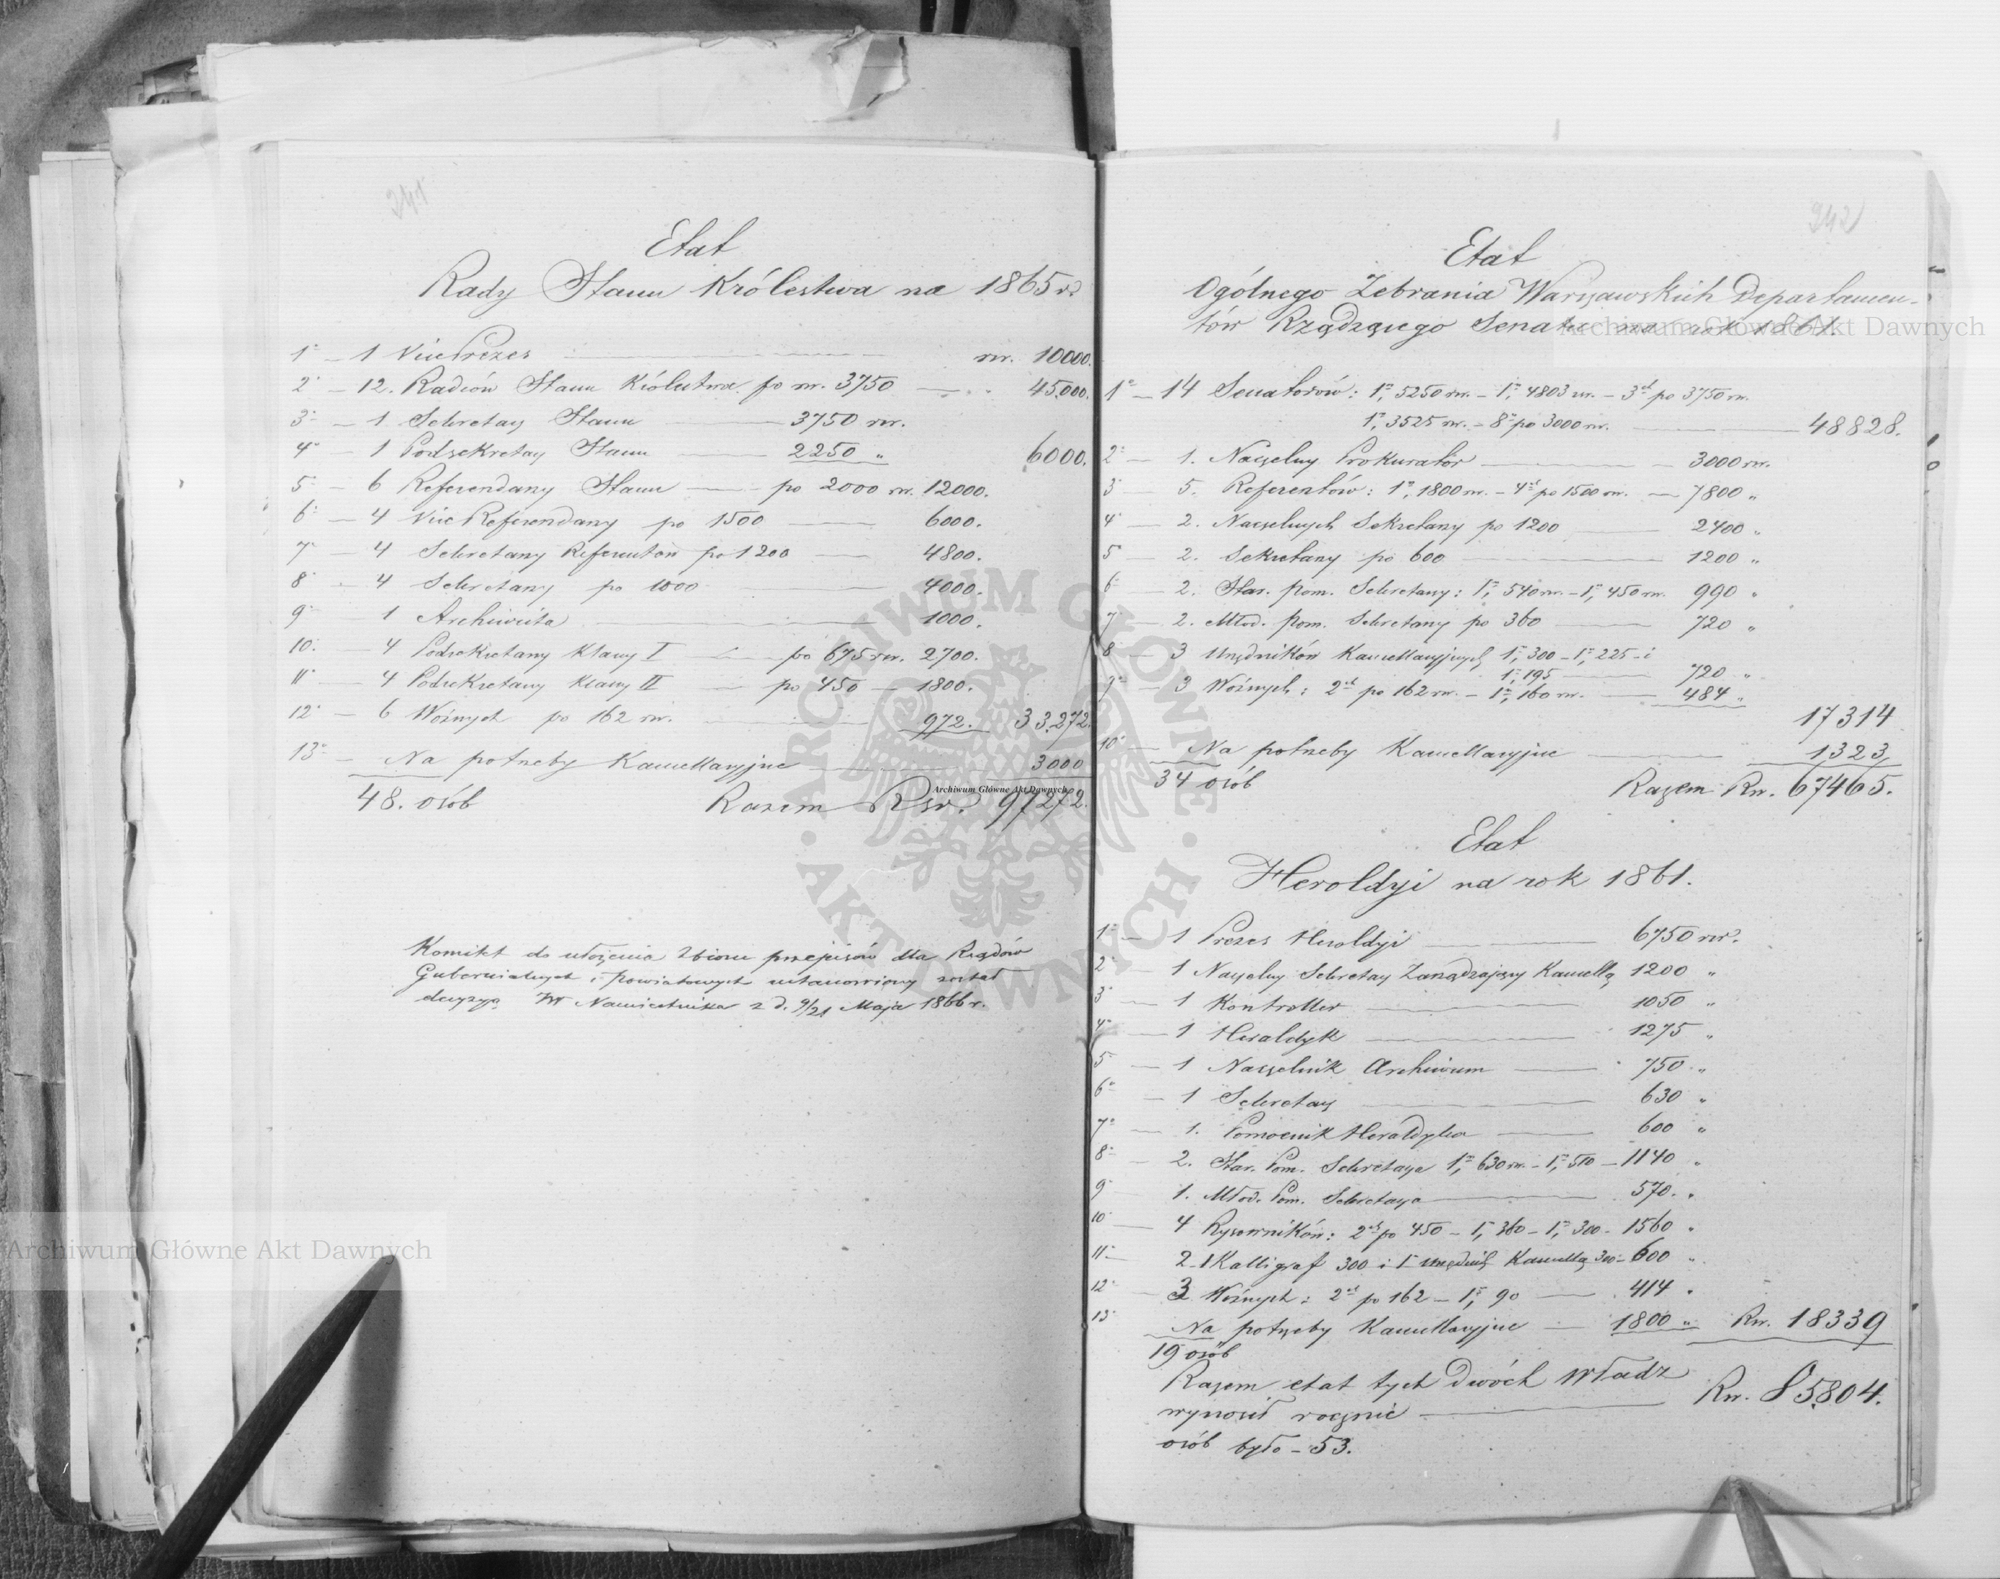 241
Etat
Rady Stanu Królestwa na 1865 r.
1° – 1 Vice Prezes rsr. 10000.
2° – 12. Radców Stanu Królestwa po rsr. 3750 45,000.
3° – 1 Sekretarz Stanu 3750 rsr.
4° – 1 Podsekretarz Stanu 2250 „ 6000.
5° – 6 Referendarzy Stanu po 2000 rsr. 12000.
6° – 4 Vice Referendarzy po 1500 6000.
7° – 4 Sekretarzy Referentów po 1200 4800.
8° – 4 Sekretarzy po 1000 4000.
9° – 1 Archiwista 1000.
10° – 4 Podsekretarzy Klassy I po 675 rsr. 2700.
11° – 4 Podsekretarzy Klassy II po 450 – 1800.
12° – 6 Woźnych po 162 rsr. 972. 33,272.
13° – Na potrzeby Kancellaryjne 3000
48. osób Razem Rsr. 97272.
Komitet do ułożenia Zbioru przepisów dla Rządów
Gubernialnych i powiatowych ustanowiony został
decyzyą JW Namiestnika z d. 9/21 Maja 1866 r.
242
Etat
Ogólnego Zebrania Warszawskich Departamen-
tów Rządzącego Senatu na rok 1861.
1° – 14 Senatorów: 1n, 5250 rsr. – 1n, 4803 rsr. – 3ch po 3750 rsr.
1n, 3525 rsr. – 8u po 3000 rsr. 48828.
2° – 1. Naczelny Prokurator – 3000 rsr.
3° – 5. Referentów: 1n, 1800 rsr. – 4ch po 1500 rsr. – 7800 „
4° – 2. Naczelnych Sekretarzy po 1200 2400 „
5° – 2. Sekretarzy po 600 1200 „
6° – 2. Star. pom. Sekretarzy: 1n, 540 rsr. – 1n, 450 rsr. 990 „
7° – 2. Młod. pom. Sekretarzy po 360 720 „
8° – 3 Urzędników Kancellaryjnych 1n, 300 – 1n, 225 – i
1n, 195 720 „
9° – 3 Woźnych: 2ch po 162 rsr. – 1n, 160 rsr. 484 „
17314
10° – Na potrzeby Kancellaryjne 1,323,
34 osób Razem Rsr. 67465.
Etat
Heroldyi na rok 1861.
1° – 1 Prezes Heroldyi 6750 rsr.
2° – 1 Naczelny Sekretarz Zarządzający Kancellą 1200 „
3° – 1 Kontroller 1050 „
4° – 1 Heraldyk 1275 „
5° – 1 Naczelnik Archiwum 750 „
6° – 1 Sekretarz 630 „
7° – 1. Pomocnik Heraldyka 600 „
8° – 2. Star. Pom. Sekretarza 1n, 630 rsr. – 1n, 510 – 1140 „
9° – 1. Młod. Pom. Sekretarza 570. „
10° – 4 Rysowników: 2ch po 450 – 1n, 360 – 1n, 300 – 1560 „
11° – 2. 1 Kalligraf 300 i 1 urzędnik Kancellą 300 – 600 „
12° – 3 Woźnych: 2ch po 162 – 1n, 90 – 414 „
13° Na potrzeby Kancellaryjne – 1800 „ Rsr. 18339
19 osób
Razem etat tych dwóch Władz
wynosił rocznie Rsr. 85,804.
osób było – 53.
Archiwum Główne Akt Dawnych
Archiwum Główne Akt Dawnych
Archiwum Główne Akt Dawnych
ARCHIWUM GŁÓWNE AKT DAWNYCH